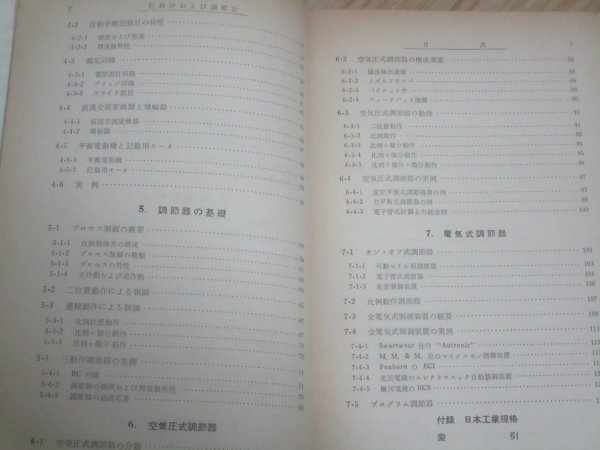 2 記録計および調節計
4・2 自動平衡記録計の特性
4・2・1 速度および感度
4・2・2 周波数特性
4・3 測定回路
4・3・1 電位差計回路
4・3・2 ブリッジ回路
4・3・3 スライド抵抗
4・4 直流交流変換器と増幅器
4・4・1 直流交流変換器
4・4・2 増幅器
4・5 平衡電動機と記録用モータ
4・5・1 平衡電動機
4・5・2 記録用モータ
4・6 実例
5. 調節器の基礎
5・1 プロセス制御の概要
5・1・1 自動制御系の構成
5・1・2 プロセス制御の種類
5・1・3 プロセスの特性
5・1・4 正作動および逆作動
5・2 二位置動作による制御
5・3 連続動作による制御
5・3・1 比例位置動作
5・3・2 比例+積分動作
5・3・3 比例+微分動作
5・4 三動作調節器の基礎
5・4・1 RC 回路
5・4・2 調節器の構成および周波数特性
5・4・3 調節器の過渡応答
6. 空気圧式調節器
6・1 空気圧式調節器の分類
目次
6・2 空気圧式調節器の構成要素
6・2・1 偏差検出機構
6・2・2 ノズルフラッパ
6・2・3 パイロット弁
6・2・4 フィードバック機構
6・3 空気圧式調節器の動作 91
6・3・1 二位置動作 91
6・3・2 比例動作 92
6・3・3 比例+積分動作 94
6・3・4 比例+微分動作
6・3・5 比例+積分+微分動作
6・4 空気圧式調節器の実例
6・4・1 変位平衡式調節機構の例
6・4・2 力平衡式調節器の例
6・4・3 電子管式計器との組合例
7. 電気式調節器
7・1 オン・オフ式調節器
7・1・1 可動コイル形調節器
7・1・2 電子管式調節器
7・1・3 走査制御装置
7・2 比例動作調節器
7・3 全電気式制御装置の概要
7・4 全電気式制御装置の実例
7・4・1 Swartwout 社の "Autronic"
7・4・2 M. M. & M. 社のマイクロセン制御装置
7・4・3 Foxboro の ECI
7・4・4 北辰電機のエレクトロニック自動制御装置
7・4・5 横河電機の ECS
7・5 プログラム調節器
付録 日本工業規格
索引